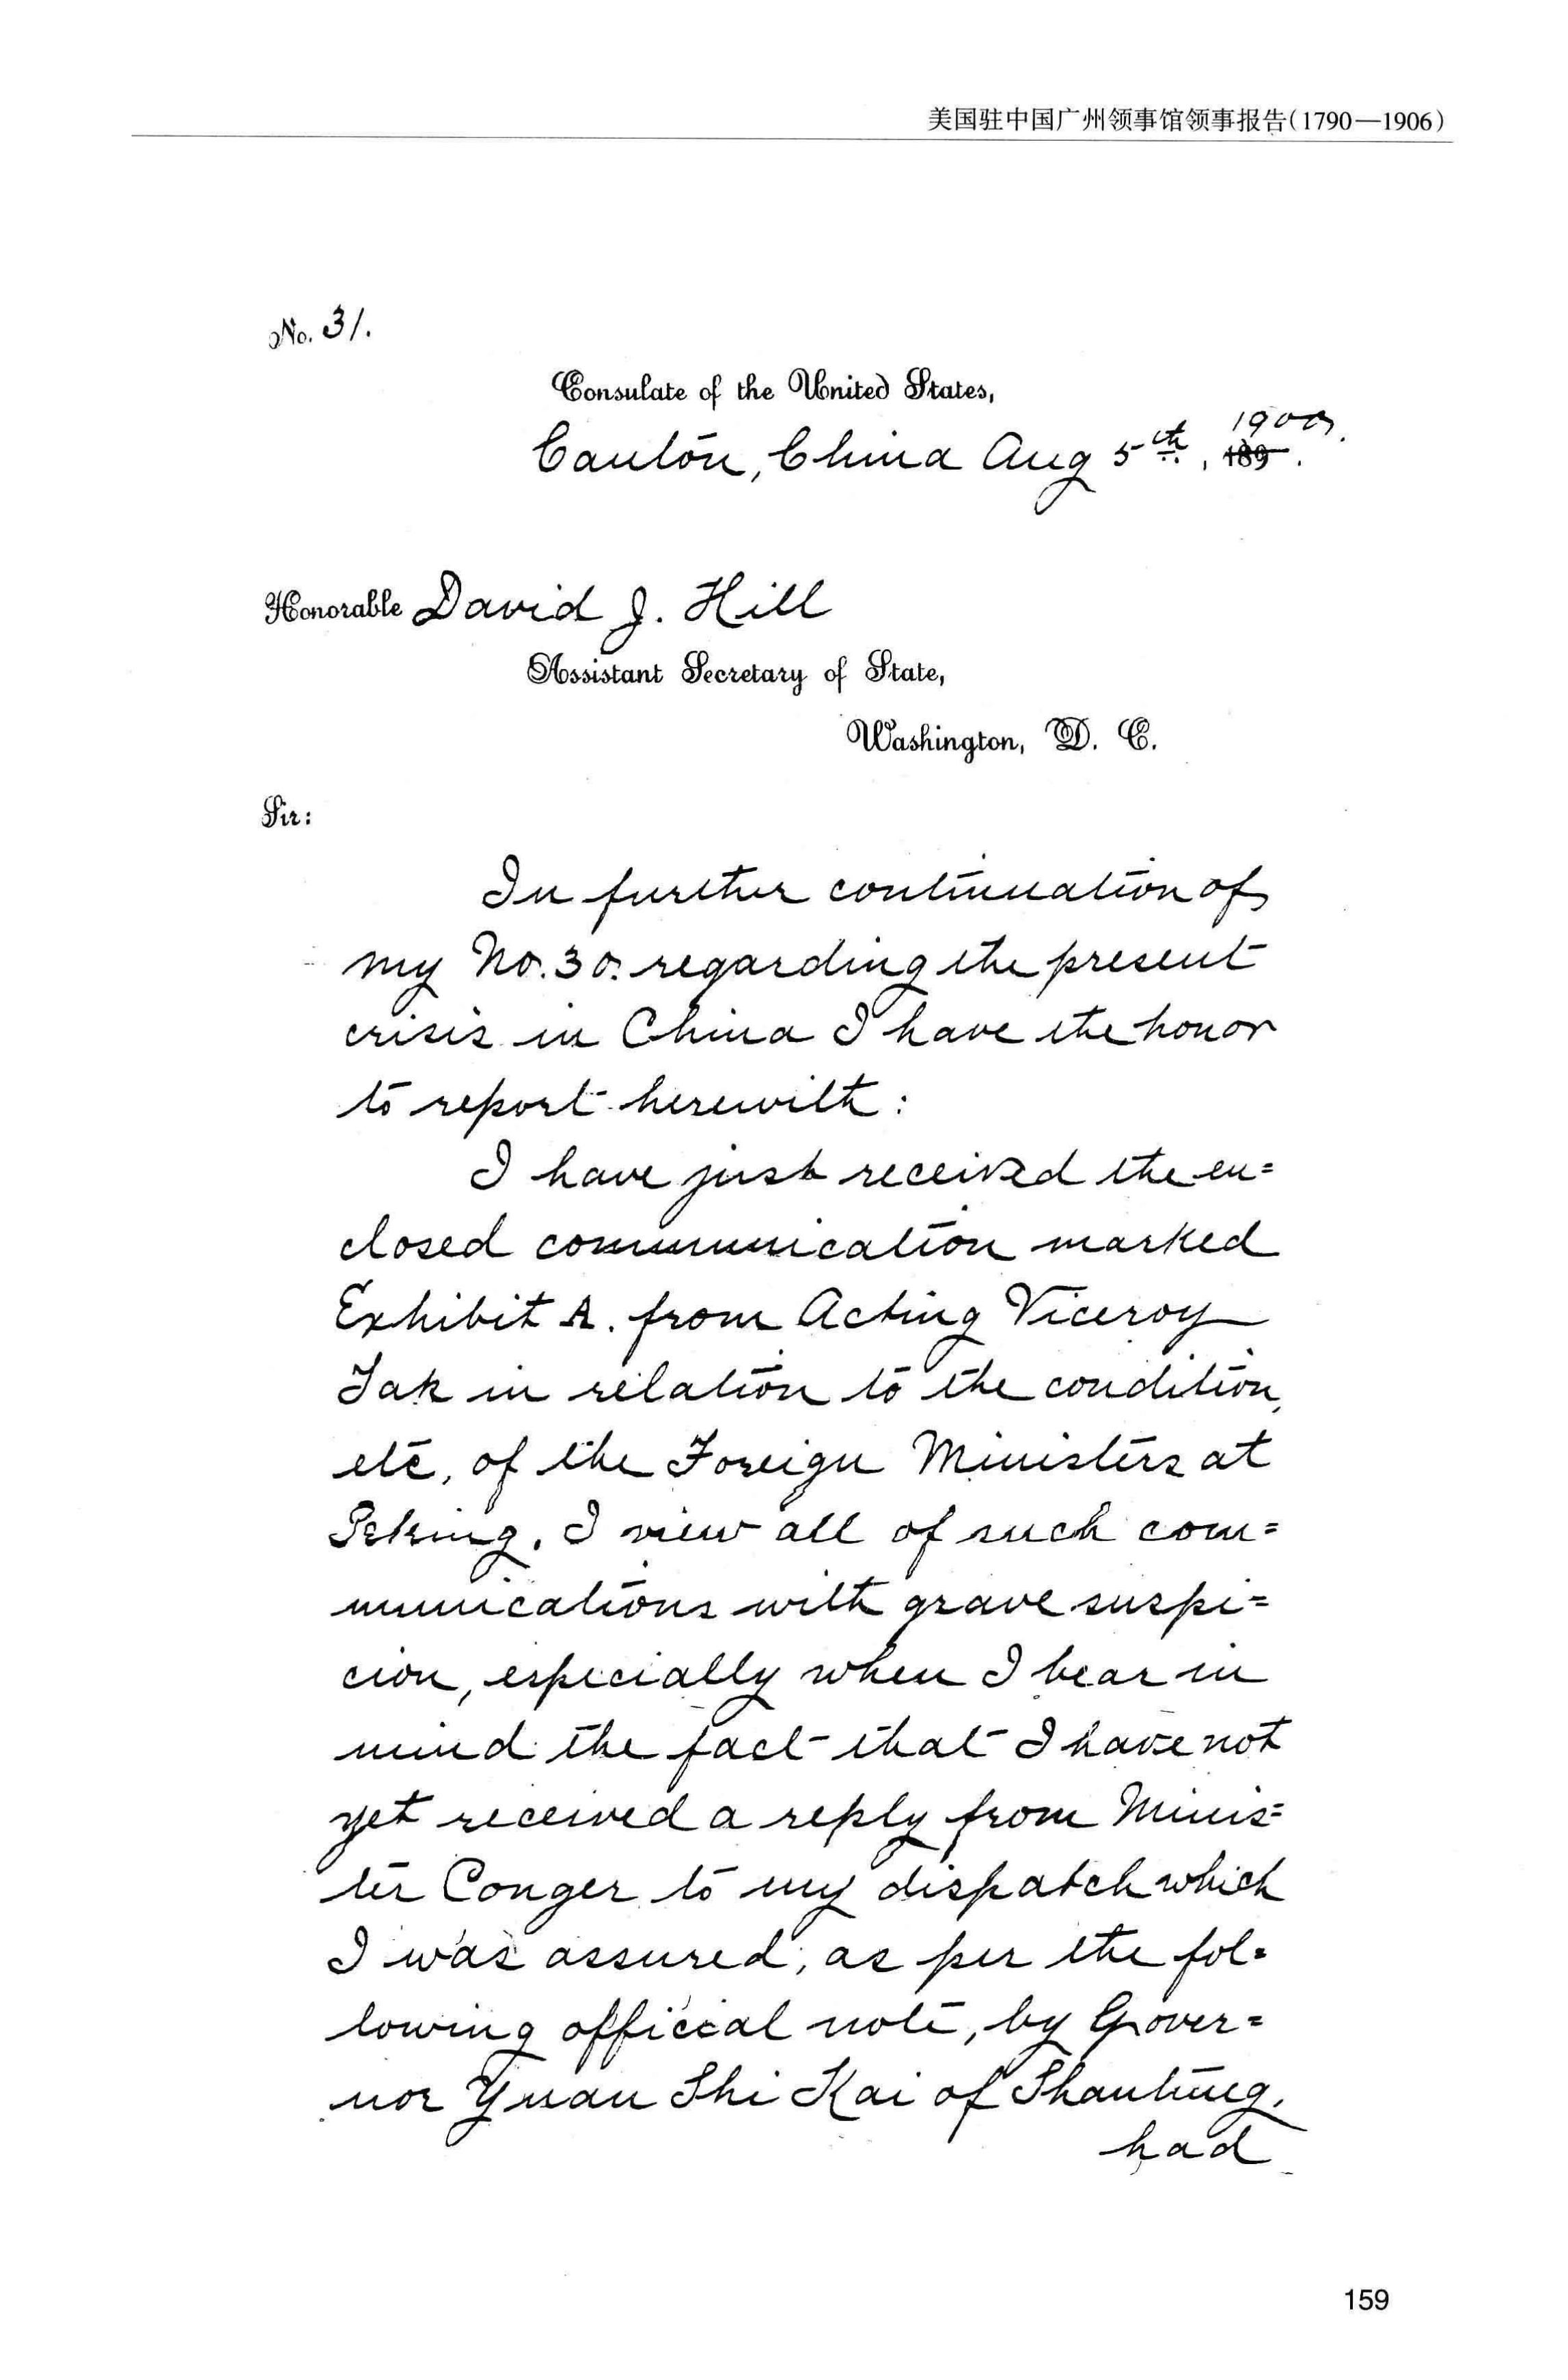 美国驻中国广州领事馆领事报告(1790—1906)
No. 31.
Consulate of the United States,
Canton, China Aug 5th, 1900.
189 .
Honorable David J. Hill
Assistant Secretary of State,
Washington, D. C.
Sir:
In further continuation of
my No. 30. regarding the present
crisis in China I have the honor
to report herewith:
I have just received the en=
closed communication marked
Exhibit A. from Acting Viceroy
Tak in relation to the condition,
etc, of the Foreign Ministers at
Peking. I view all of such com=
munications with grave suspi=
cion, especially when I bear in
mind the fact that I have not
yet received a reply from Minis=
ter Conger to my dispatch which
I was assured, as per the fol=
lowing official note, by Gover=
nor Yuan Shi Kai of Shantung,
had
159